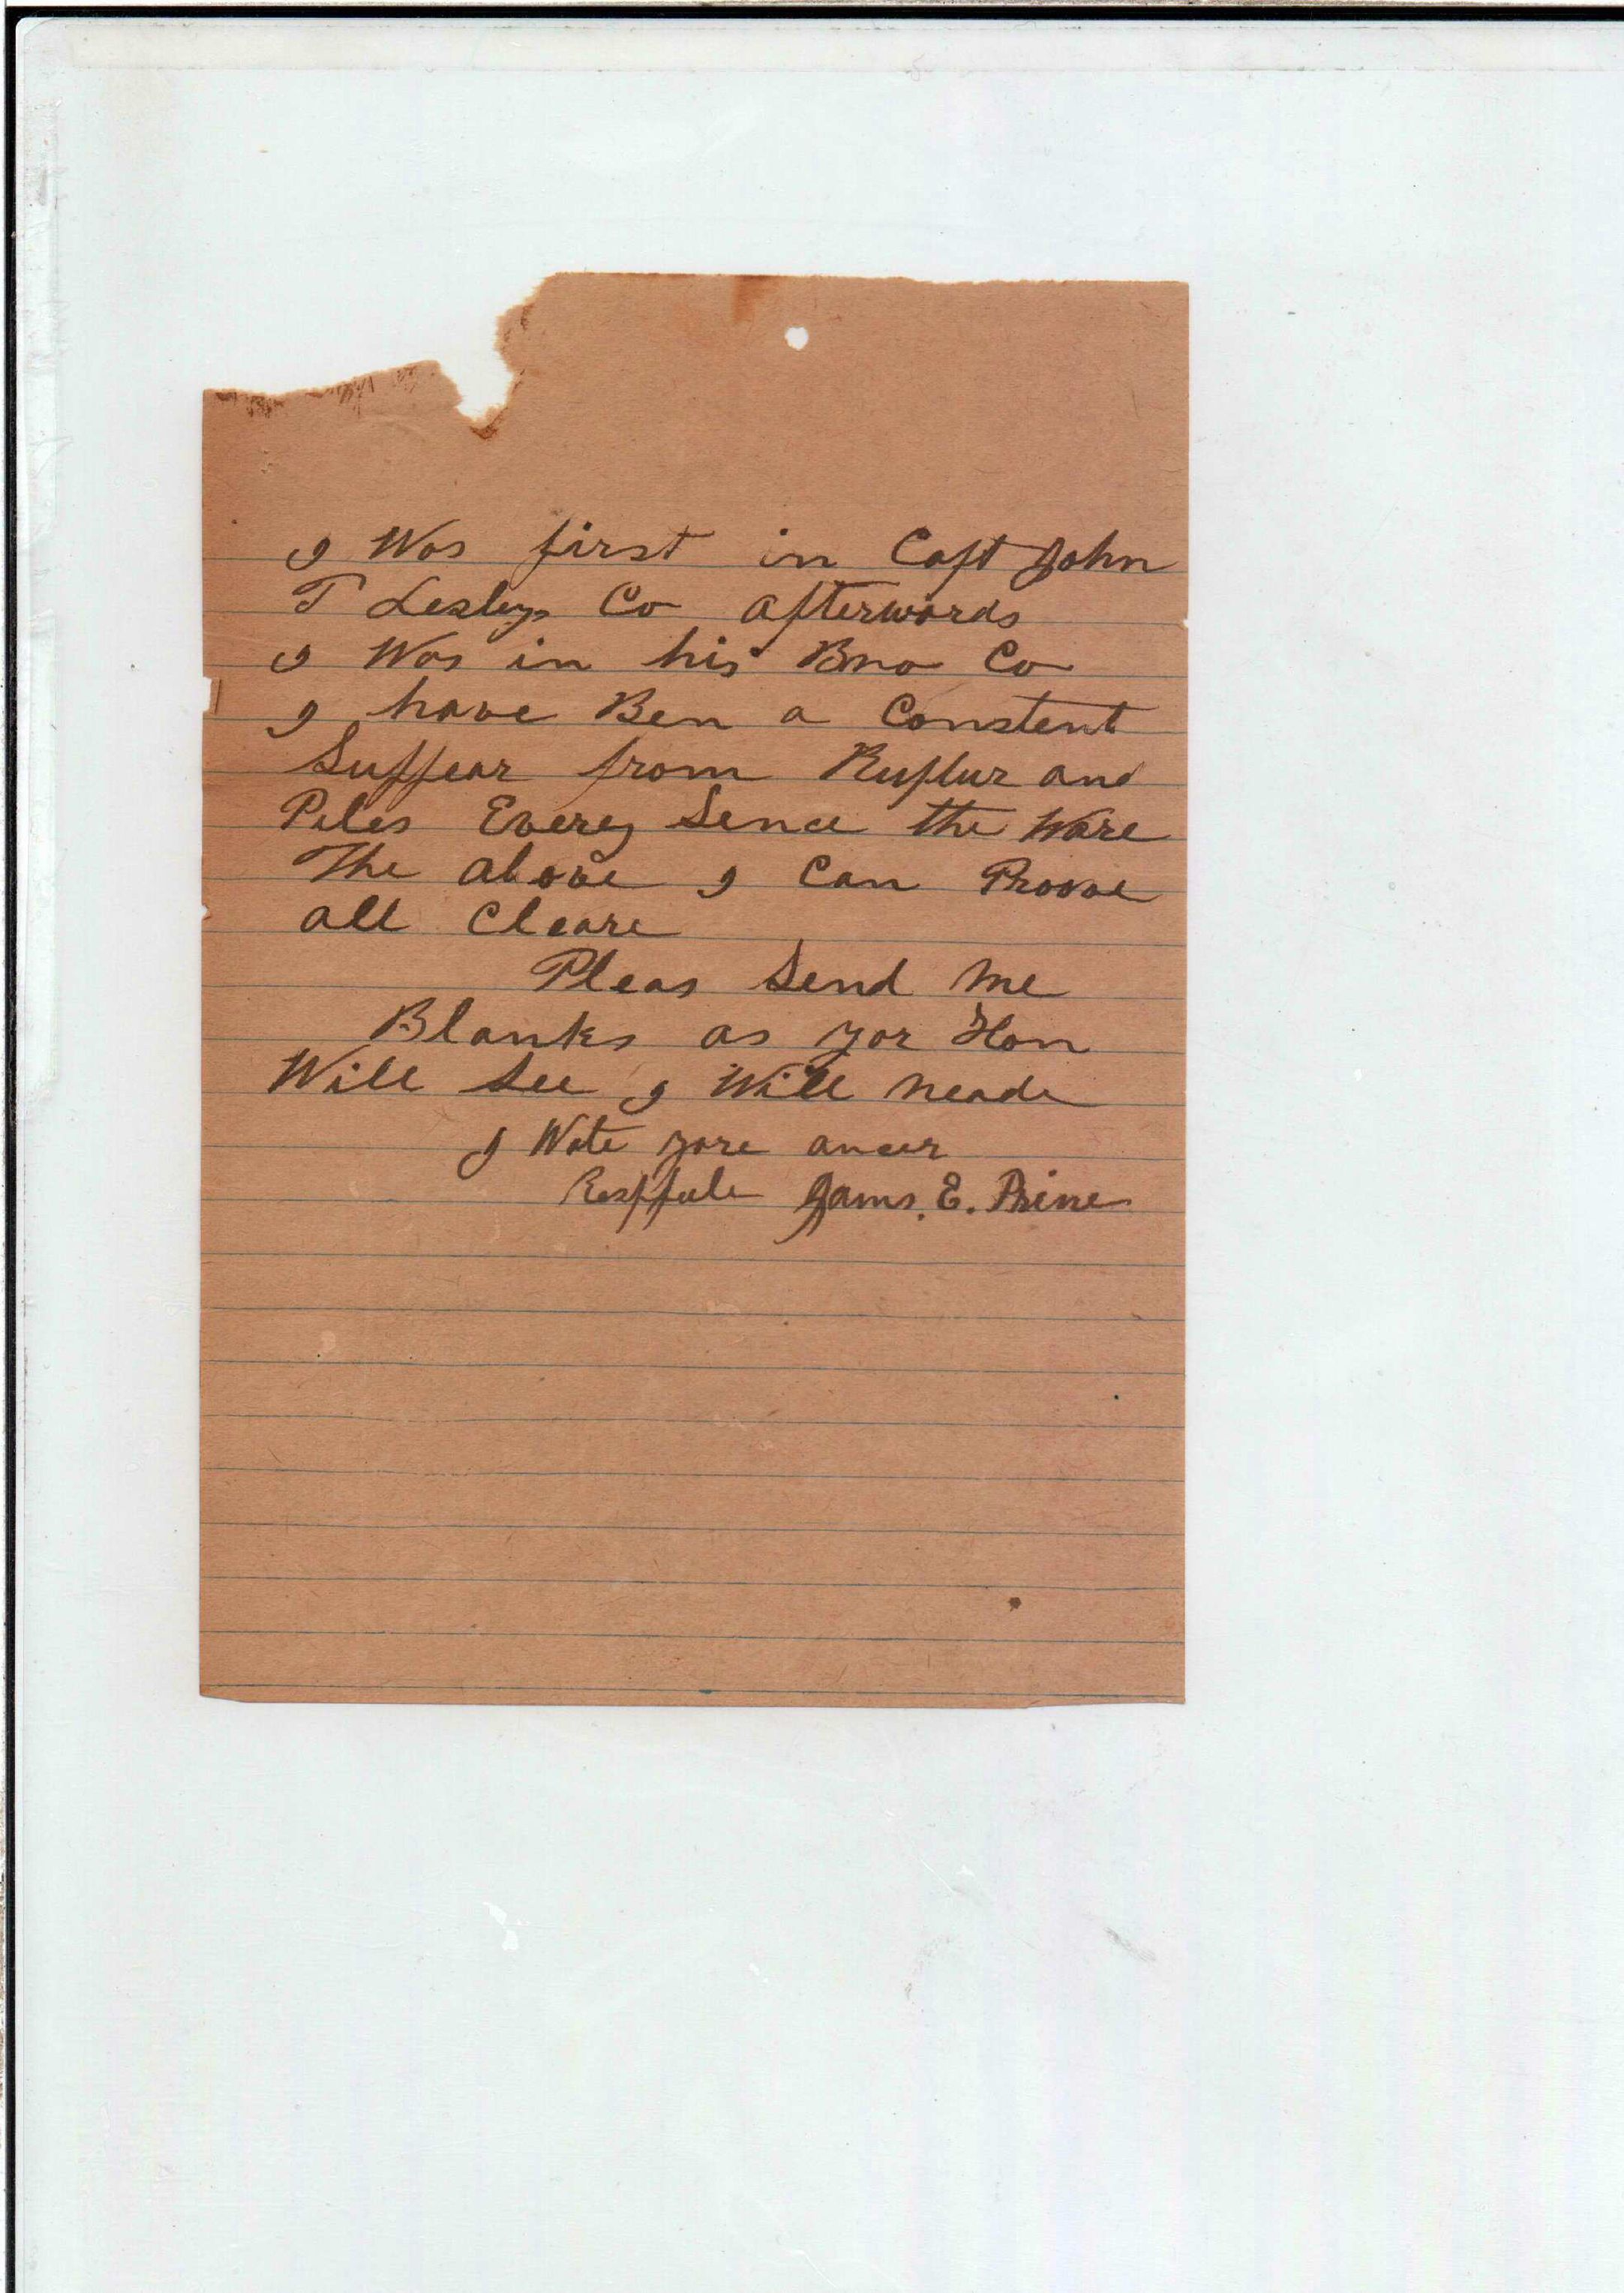 I Was first in Capt John
T Lesleys Co afterwards
I Was in his Bro Co
I have Ben a Constent
Suffear from Ruptur and
Piles Everey Sence the Ware
The above I Can Proove
all Cleare
Pleas Send Me
Blanks as yor Hon
Will See I Will neade
I Wate yore ancer
Respfule Jams. E. Prine